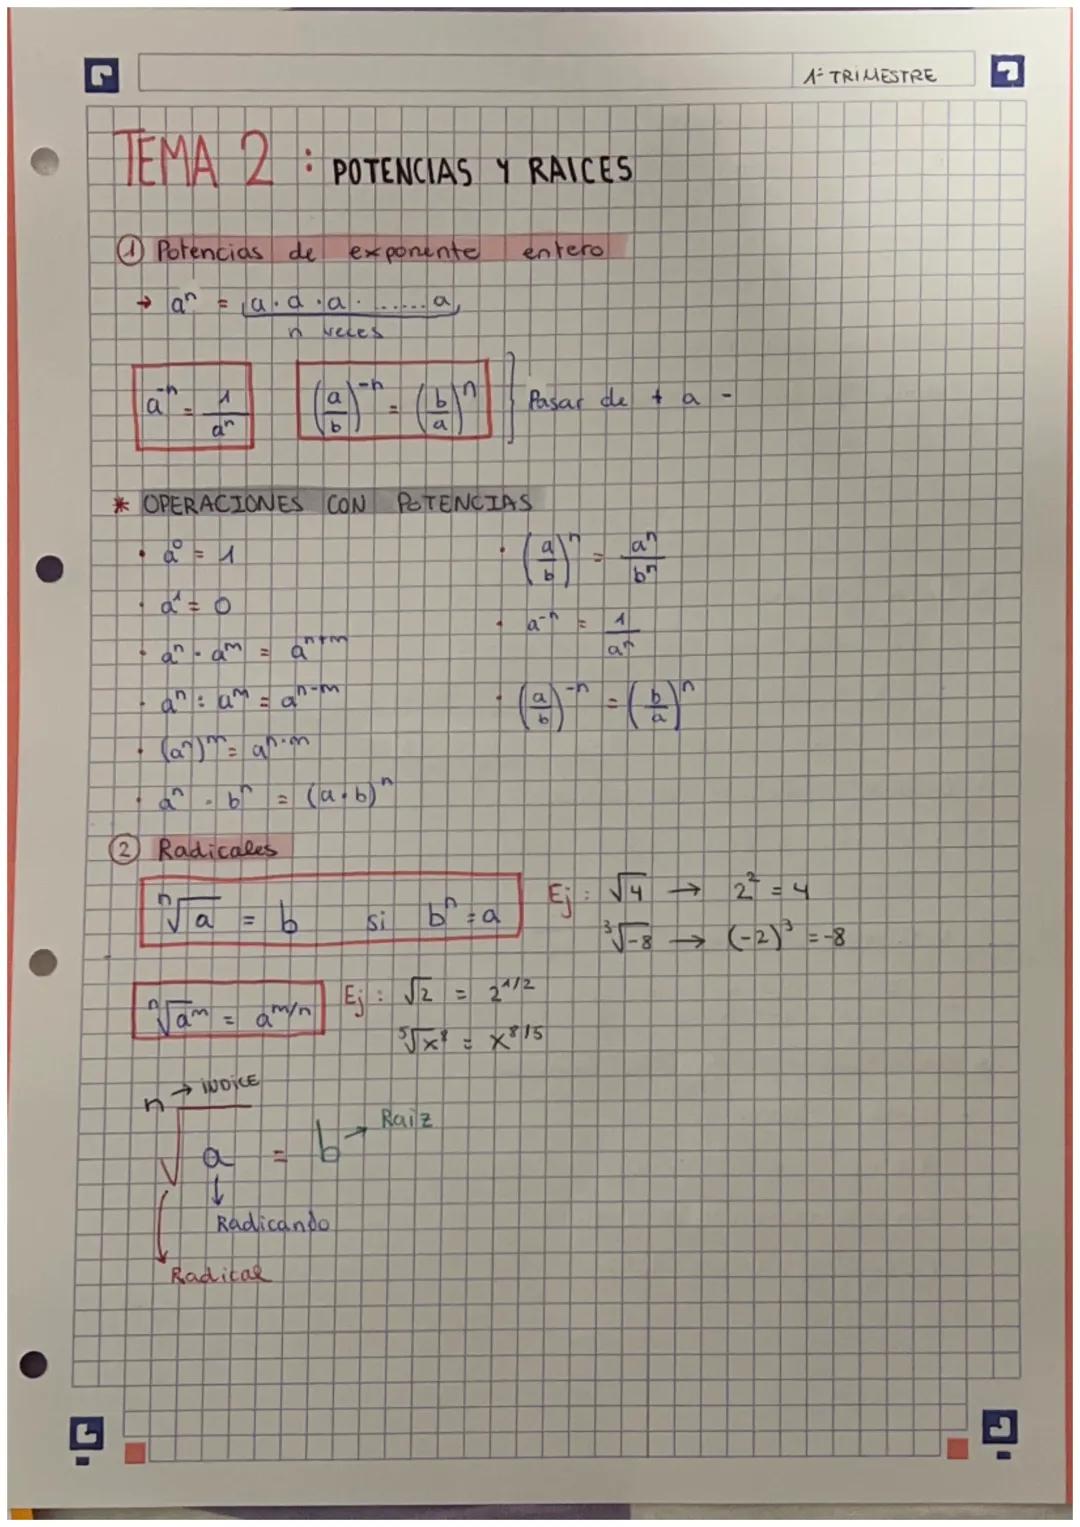 1º TRIMESTRE
TEMA 2 : POTENCIAS Y RAICES
① Potencias de exponente entero
→ aⁿ = a · a · a · ...... a
n veces
a⁻ⁿ = 1/aⁿ   (a/b)⁻ⁿ = (b/a)ⁿ } Pasar de + a -
* OPERACIONES CON POTENCIAS
· a⁰ = 1
· a¹ = 0
· aⁿ · aᵐ = aⁿ⁺ᵐ
· aⁿ : aᵐ = aⁿ⁻ᵐ
· (aⁿ)ᵐ = aⁿ·ᵐ
· aⁿ · bⁿ = (a·b)ⁿ
· (a/b)ⁿ = aⁿ/bⁿ
· a⁻ⁿ = 1/aⁿ
· (a/b)⁻ⁿ = (b/a)ⁿ
② Radicales
ⁿ√a = b si bⁿ = a
Ej : √4 → 2² = 4
³√-8 → (-2)³ = -8
ⁿ√aᵐ = a^m/n
Ej : √2 = 2^1/2
⁵√x⁸ = x^8/5
n → INDICE
√a = b → Raiz
Radicando
Radical